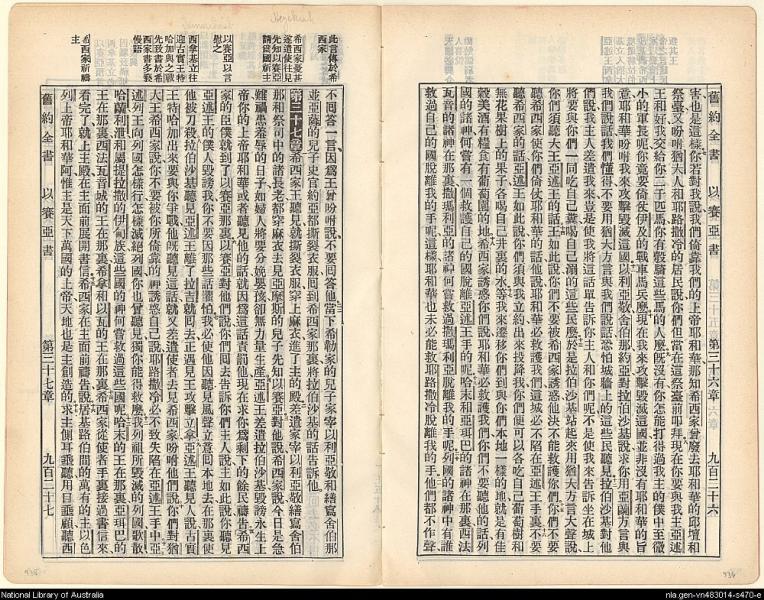 舊約全書 以賽亞書 第三十六章 九百二十六
害也是這樣你若對我說我們倚靠我們的上帝耶和華那知希西家曾廢去耶和華的邱壇和
祭臺又吩咐猶大人和耶路撒冷的居民說你們但當在這祭臺前叩拜現在你要與我主亞述
王和好我交給你二千匹馬你有騎這些馬的人麼既沒有你怎能打得過我主的僕中至微
小的軍長呢你竟要倚仗伊及的戰車馬兵麼現在我來攻擊毀滅這國並非沒有耶和華的旨
意耶和華吩咐我來攻擊毀滅這國以利亞敬舍伯那約亞對拉伯沙基說求你用亞蘭方言與
我們說話我們懂得不要用猶大方言與我們說話恐怕城牆上的這些民聽見拉伯沙基對他
們說我主人差遣我來豈是使我將這話單告訴你主人和你們呢不是使我來告訴坐在城上
將要與你們一同吃自己糞喝自己溺的這些民麼於是拉伯沙基站起來用猶大方言大聲說
你們須聽大王亞述王的話王如此說你們不要被希西家誘惑他決不能救護你們你們不要
聽希西家的話亞述王如此說你們須與我立約出來投降我你們便可以各吃自己葡萄樹和
無花果樹上的果子各喝自己井裏的水等我來遷移你們到與你們本地一樣的地就是有佳
穀美酒有糧食有葡萄園的地希西家誘惑你們說耶和華必救護我們你們不要聽他的話列
國的諸神何嘗有一個救護自己的國脫離亞述王手的呢哈末和亞珥巴的諸神在那裏西法
瓦音的諸神在那裏撒瑪利亞的諸神何嘗救過撒瑪利亞脫離我的手呢列國的諸神中有誰
救過自己的國脫離我的手呢這樣耶和華也未必能救耶路撒冷脫離我的手他們都不作聲
此言傳於希西家
希西家憂甚遂遣使往見先知以賽亞請為國祈主
以賽亞以言慰之
西拿基立往迎古實王特哈加與之戰先致書於希西家書多褻慢語
希西家祈禱主
不回答一言因為王曾吩咐說不要回答他當下希勒家的兒子家宰以利亞敬和繕寫舍伯那
並亞薩的兒子史官約亞都撕裂衣服回到希西家那裏將拉伯沙基的話告訴他
第三十七章 希西家王聽見就撕裂衣服穿上麻衣進了主的殿差遣家宰以利亞敬繕寫舍伯
那和祭司中的諸長老都穿麻衣去見亞摩斯的兒子先知以賽亞對他說希西家說今日是急
難禍患羞辱的日子如婦人將要分娩嬰孩卻無力量生產亞述王差遣拉伯沙基毀謗永生上
帝你的上帝耶和華或者聽見他的話就因為這話責罰他現在求你為剩下的餘民禱告希西
家的臣僕就到了以賽亞那裏以賽亞對他們說你們回去告訴你們主人說主如此說你聽見
亞述王的僕人毀謗我你不要因那些話懼怕我必使他因聽見風聲立意回本地去在那裏使
他被刀殺拉伯沙基聽見亞述王離了拉吉就回去正遇見王攻擊立拿亞述王聽見人說古實
王特哈加出來要與你爭戰他既聽見這話就又差遣使者去見希西家吩咐他們說你們對猶
大王希西家說你不要被你所倚靠的神誘惑自己說耶路撒冷必不致失陷在亞述王手中亞
述列王向列國怎樣行怎樣滅絕列國你也曾聽見獨你能得救麼我列祖所毀滅的列國歌散
哈蘭利泄和屬提拉撒的伊甸族這些國的神何嘗救過這些國呢哈末的王在那裏亞珥巴的
王在那裏西法瓦音城的王在那裏希拿和以瓦的王在那裏希西家從使者手裏接過書信來
看完了就上主殿在主面前展開書信希西家在主面前禱告說居基路伯間的萬有的主以色
列上帝耶和華阿惟主是天下萬國的上帝天地也是主創造的求主側耳垂聽用目垂顧聽西
舊約全書 以賽亞書 第三十七章 九百二十七
National Library of Australia
nla.gen-vn483014-s470-e